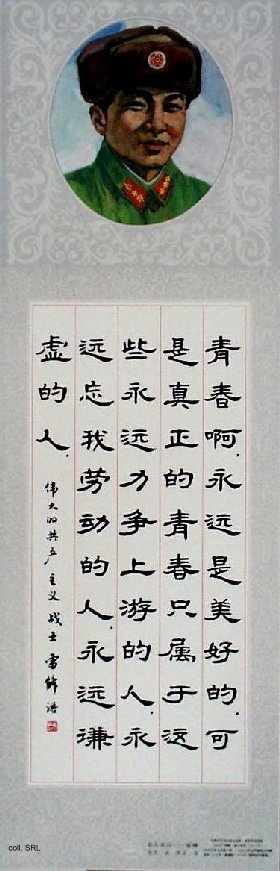 青春啊，永远是美好的，可
是真正的青春只属于这
些永远力争上游的人，永
远忘我劳动的人，永远谦
虚的人．
伟大的共产主义战士 雷锋语
coll. SRL